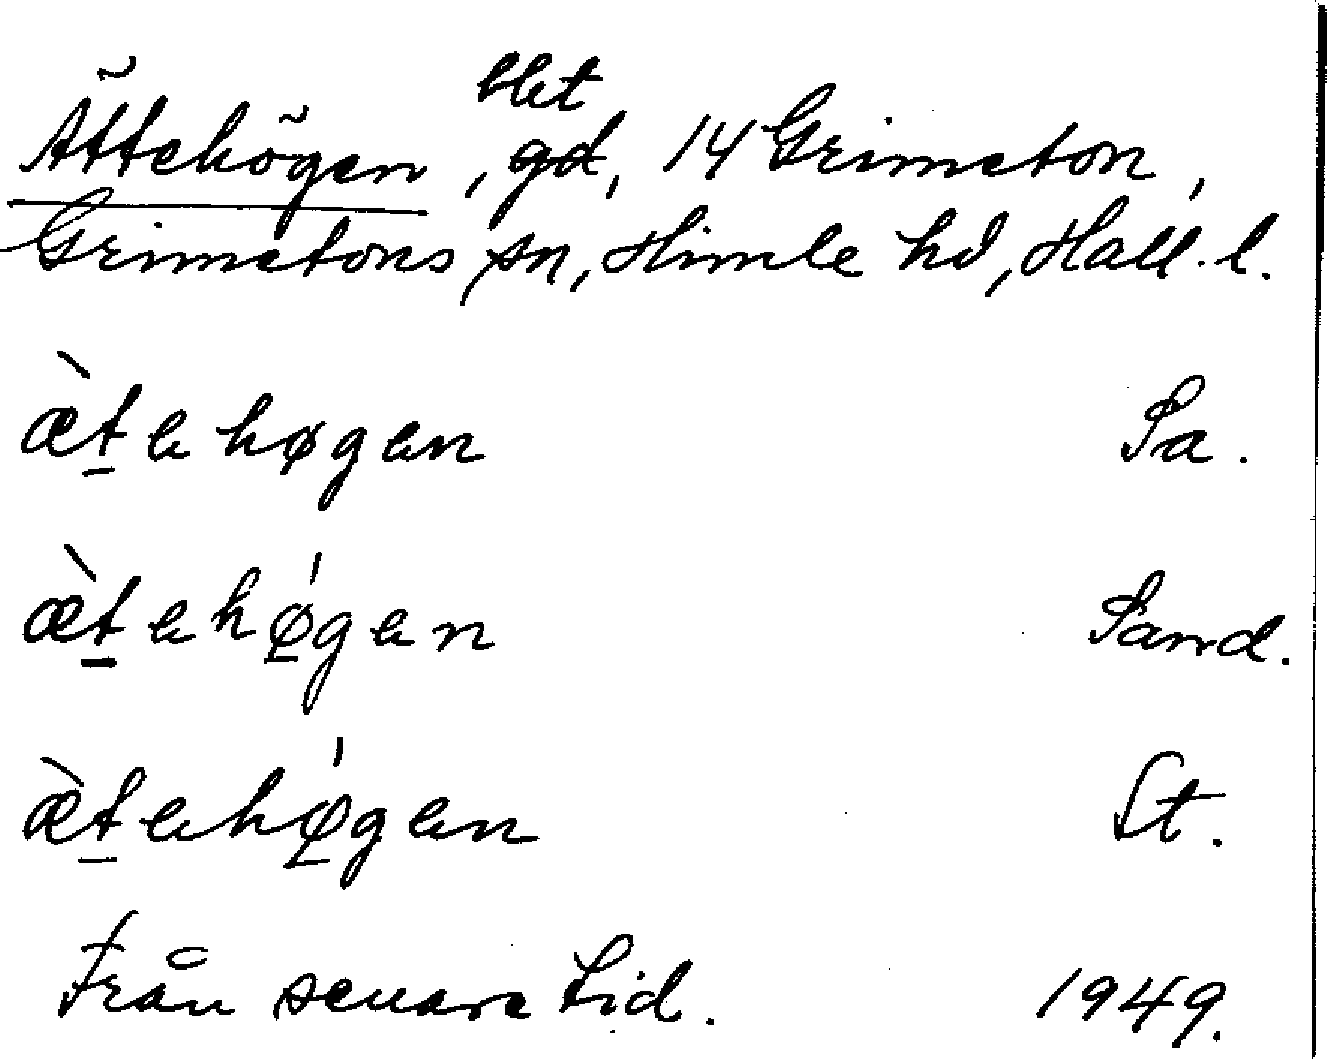 Ättehögen, blet gd, 14 Grimeton,
Grimetons sn, Himle hd, Hall. l.
æ̀t̠ehøgen Sa.
æ̀t̠ehǿ̠gen Sand.
æ̀t̠ehǿ̠gen St.
Från senare tid. 1949.